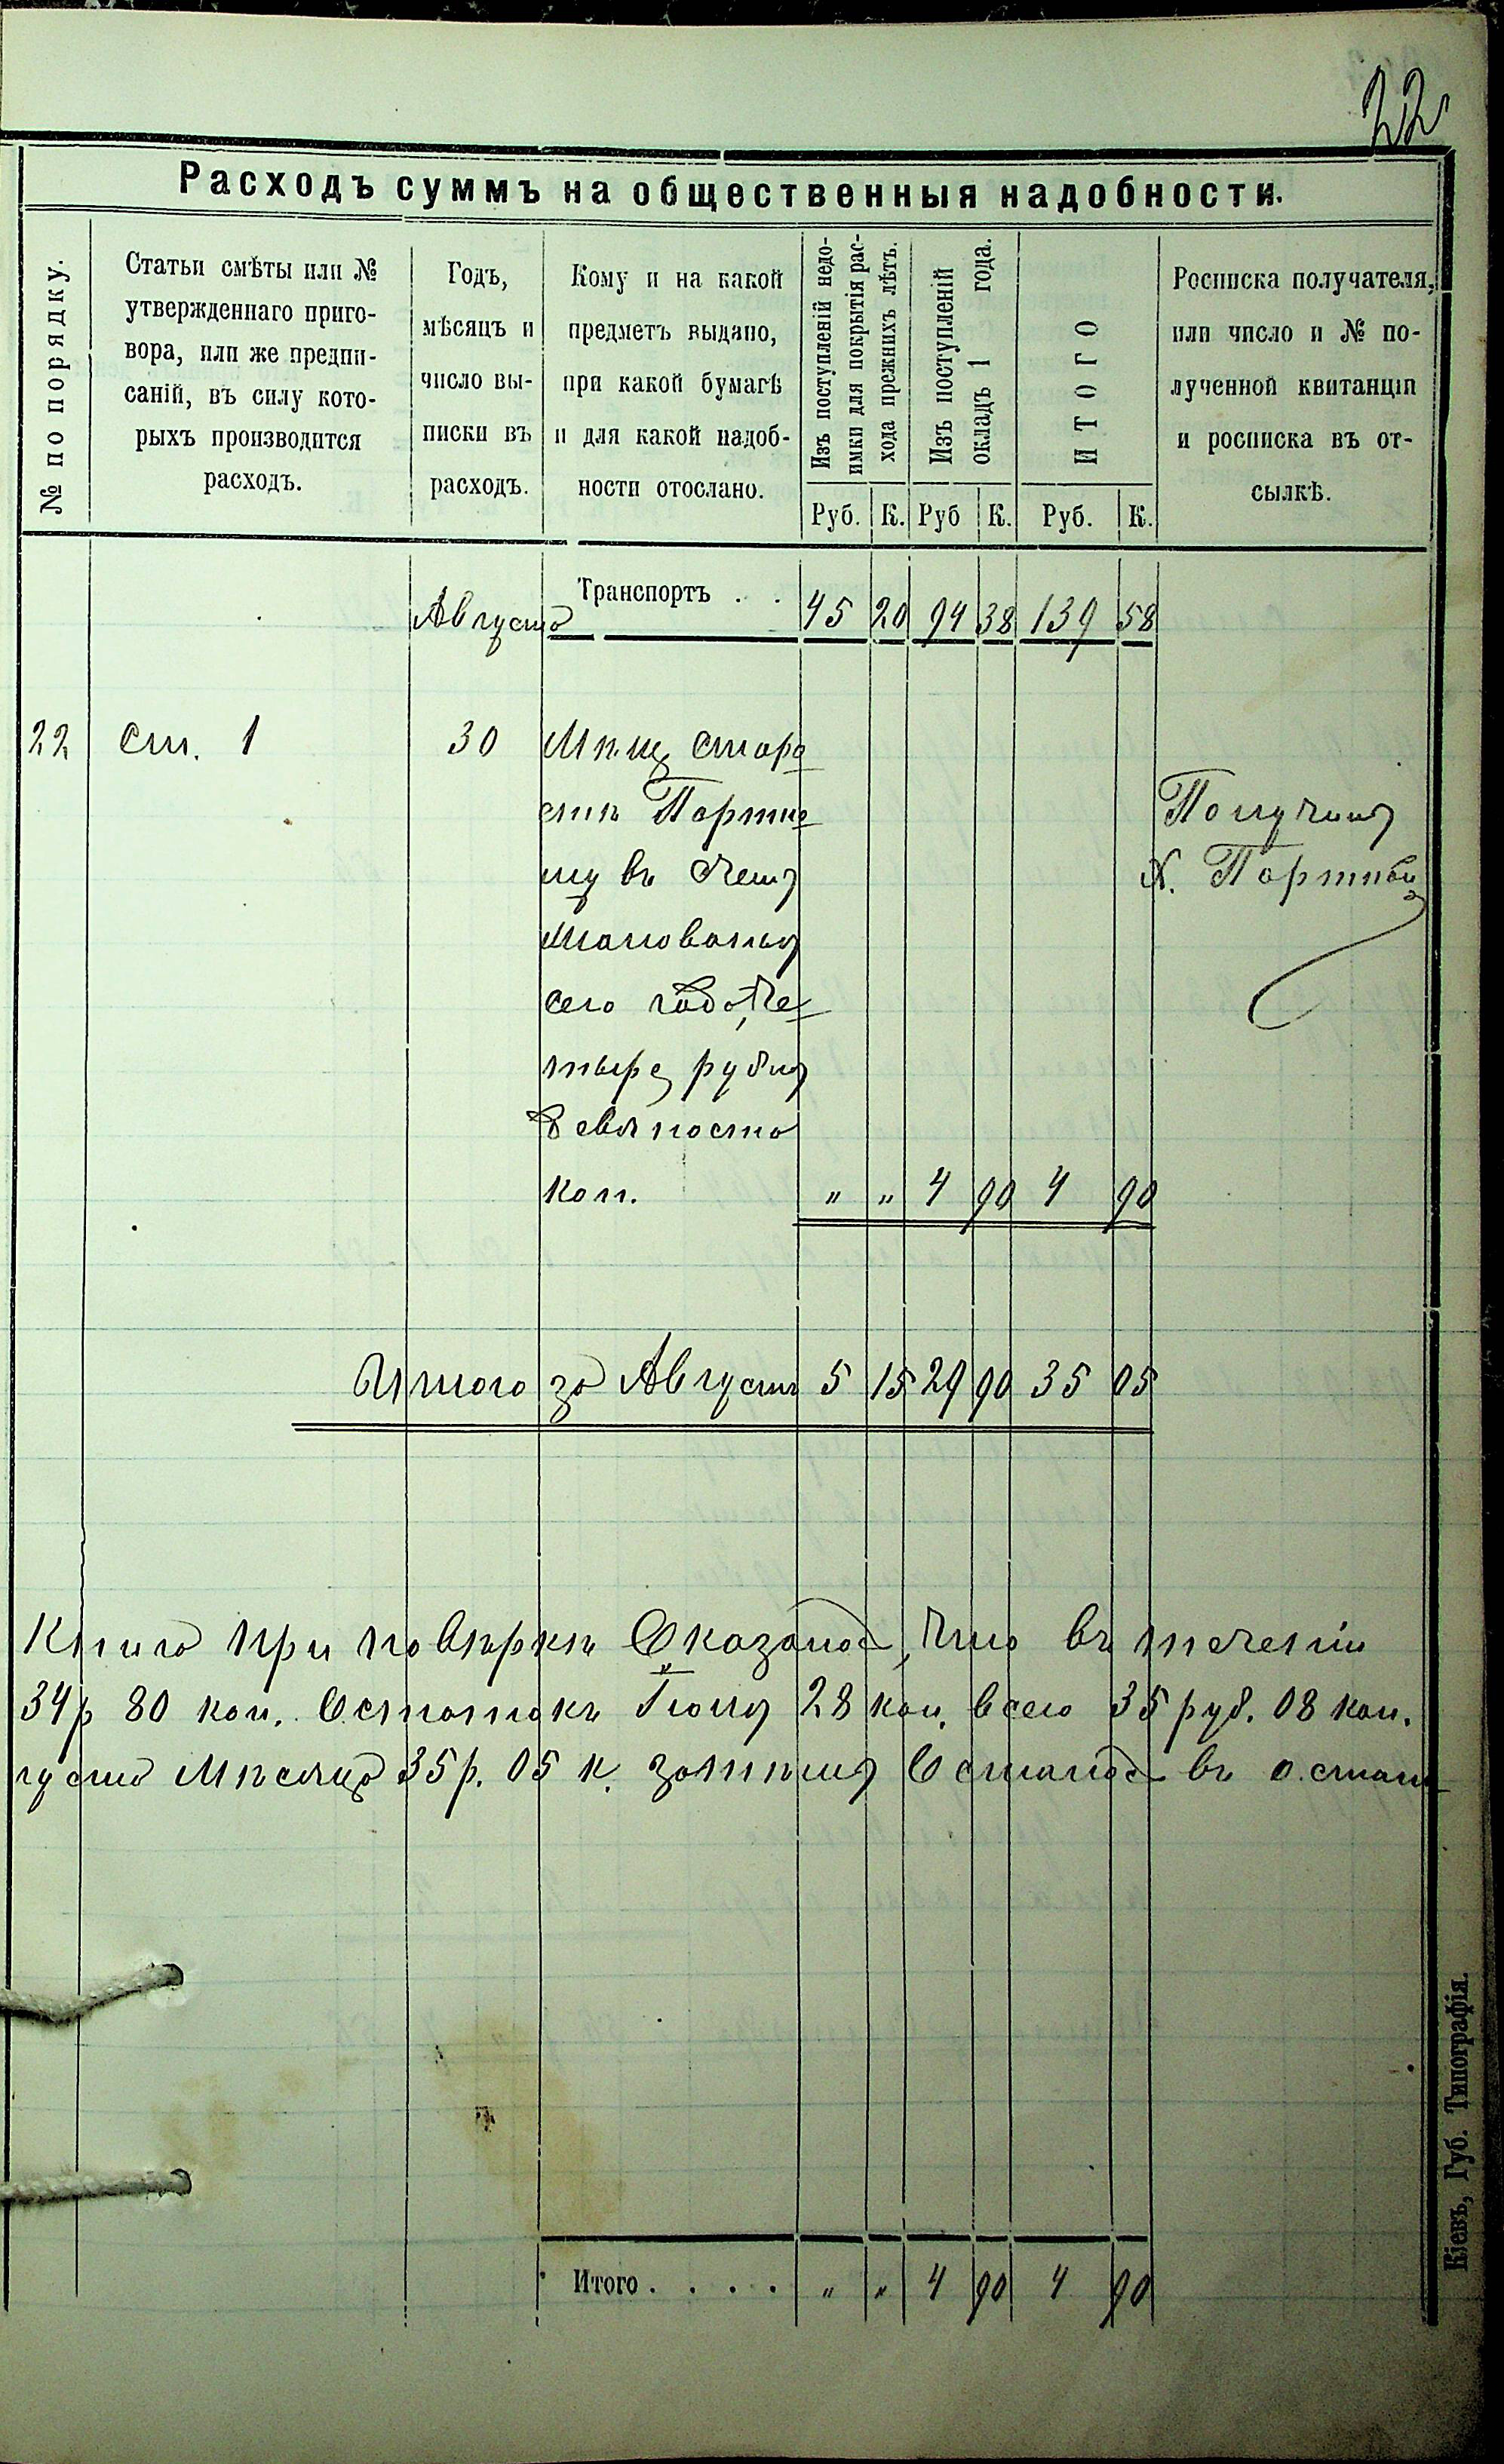 22
Расходъ суммъ на общественныя надобности.
№ по порядку.
Статьи смѣты или №
утвержденнаго приго-
вора, или же предпи-
саній, въ силу кото-
рыхъ производится
расходъ.
Годъ,
мѣсяцъ и
число вы-
писки въ
расходъ.
Кому и на какой
предметъ выдано,
при какой бумагѣ
и для какой надоб-
ности отослано.
Изъ поступленій недо-
имки для покрытія рас-
хода прежнихъ лѣтъ.
Изъ поступленій
окладъ 1 года.
ИТОГО
Росписка получателя,
или число и № по-
лученной квитанціи
и росписка въ от-
сылкѣ.
Руб. К. Руб К. Руб. К.
Августа Транспортъ . . 45 20 94 38 139 58
22 Ст. 1 30 Мѣщ. старо
стѣ Портно
му въ счетъ
жалованья
сего года, че
тыре рубля
девяносто
коп. " " 4 90 4 90
Получилъ
Х. Портный
Итого за Августъ 5 15 29 90 35 05
Книга при повѣркѣ оказалось, что въ теченіи
34р 80 коп. Остатокъ Іюля 28 коп. всего 35 руб. 08 коп.
густа мѣсяца 35 р. 05 к. затѣмъ осталось въ остат
Итого . . . . " " 4 90 4 90
Кіевъ, Губ. Типографія.